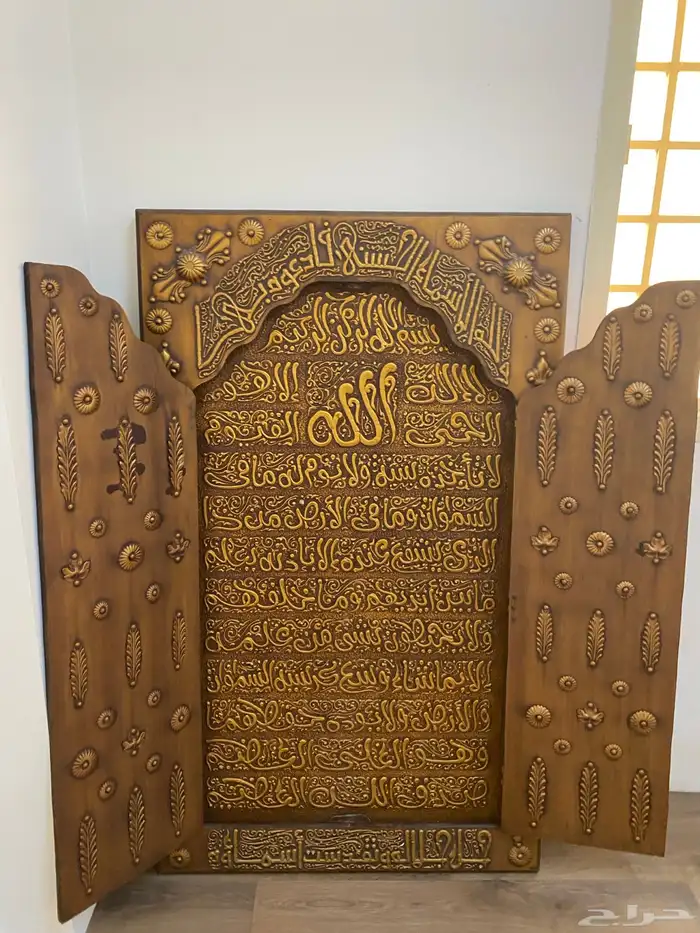 ولله الأسماء الحسنى فادعوه بها
بسم الله الرحمن الرحيم
الله لا إله إلا هو
الحي القيوم
لا تأخذه سنة ولا نوم له ما في
السموات وما في الأرض من ذا
الذي يشفع عنده إلا بإذنه يعلم
ما بين أيديهم وما خلفهم
ولا يحيطون بشيء من علمه
إلا بما شاء وسع كرسيه السموات
والأرض ولا يؤده حفظهما
وهو العلي العظيم
صدق الله العظيم
جل جلاله وتقدست أسماؤه
حراج